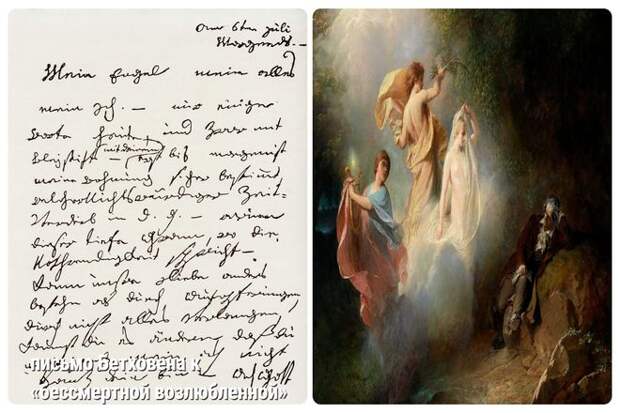 am 6ten juli
Morgends. –
Mein Engel mein alles
mein Ich. – nur einige
worte heute, und zwar mit
bleystift – (mit deinem) erst bis morgen ist
meine wohnung sicher bestimmt,
welcher nichtswürdiger Zeit-
verderb in d. g. – warum
dieser tiefe Gram, wo die
Nothwendigkeit spricht –
Kann unsre Liebe anders
bestehn als durch aufopferungen,
durch nicht alles verlangen,
kannst du es ändern, daß du
nicht
ach Gott
письмо Бетховена к
«бессмертной возлюбленной»